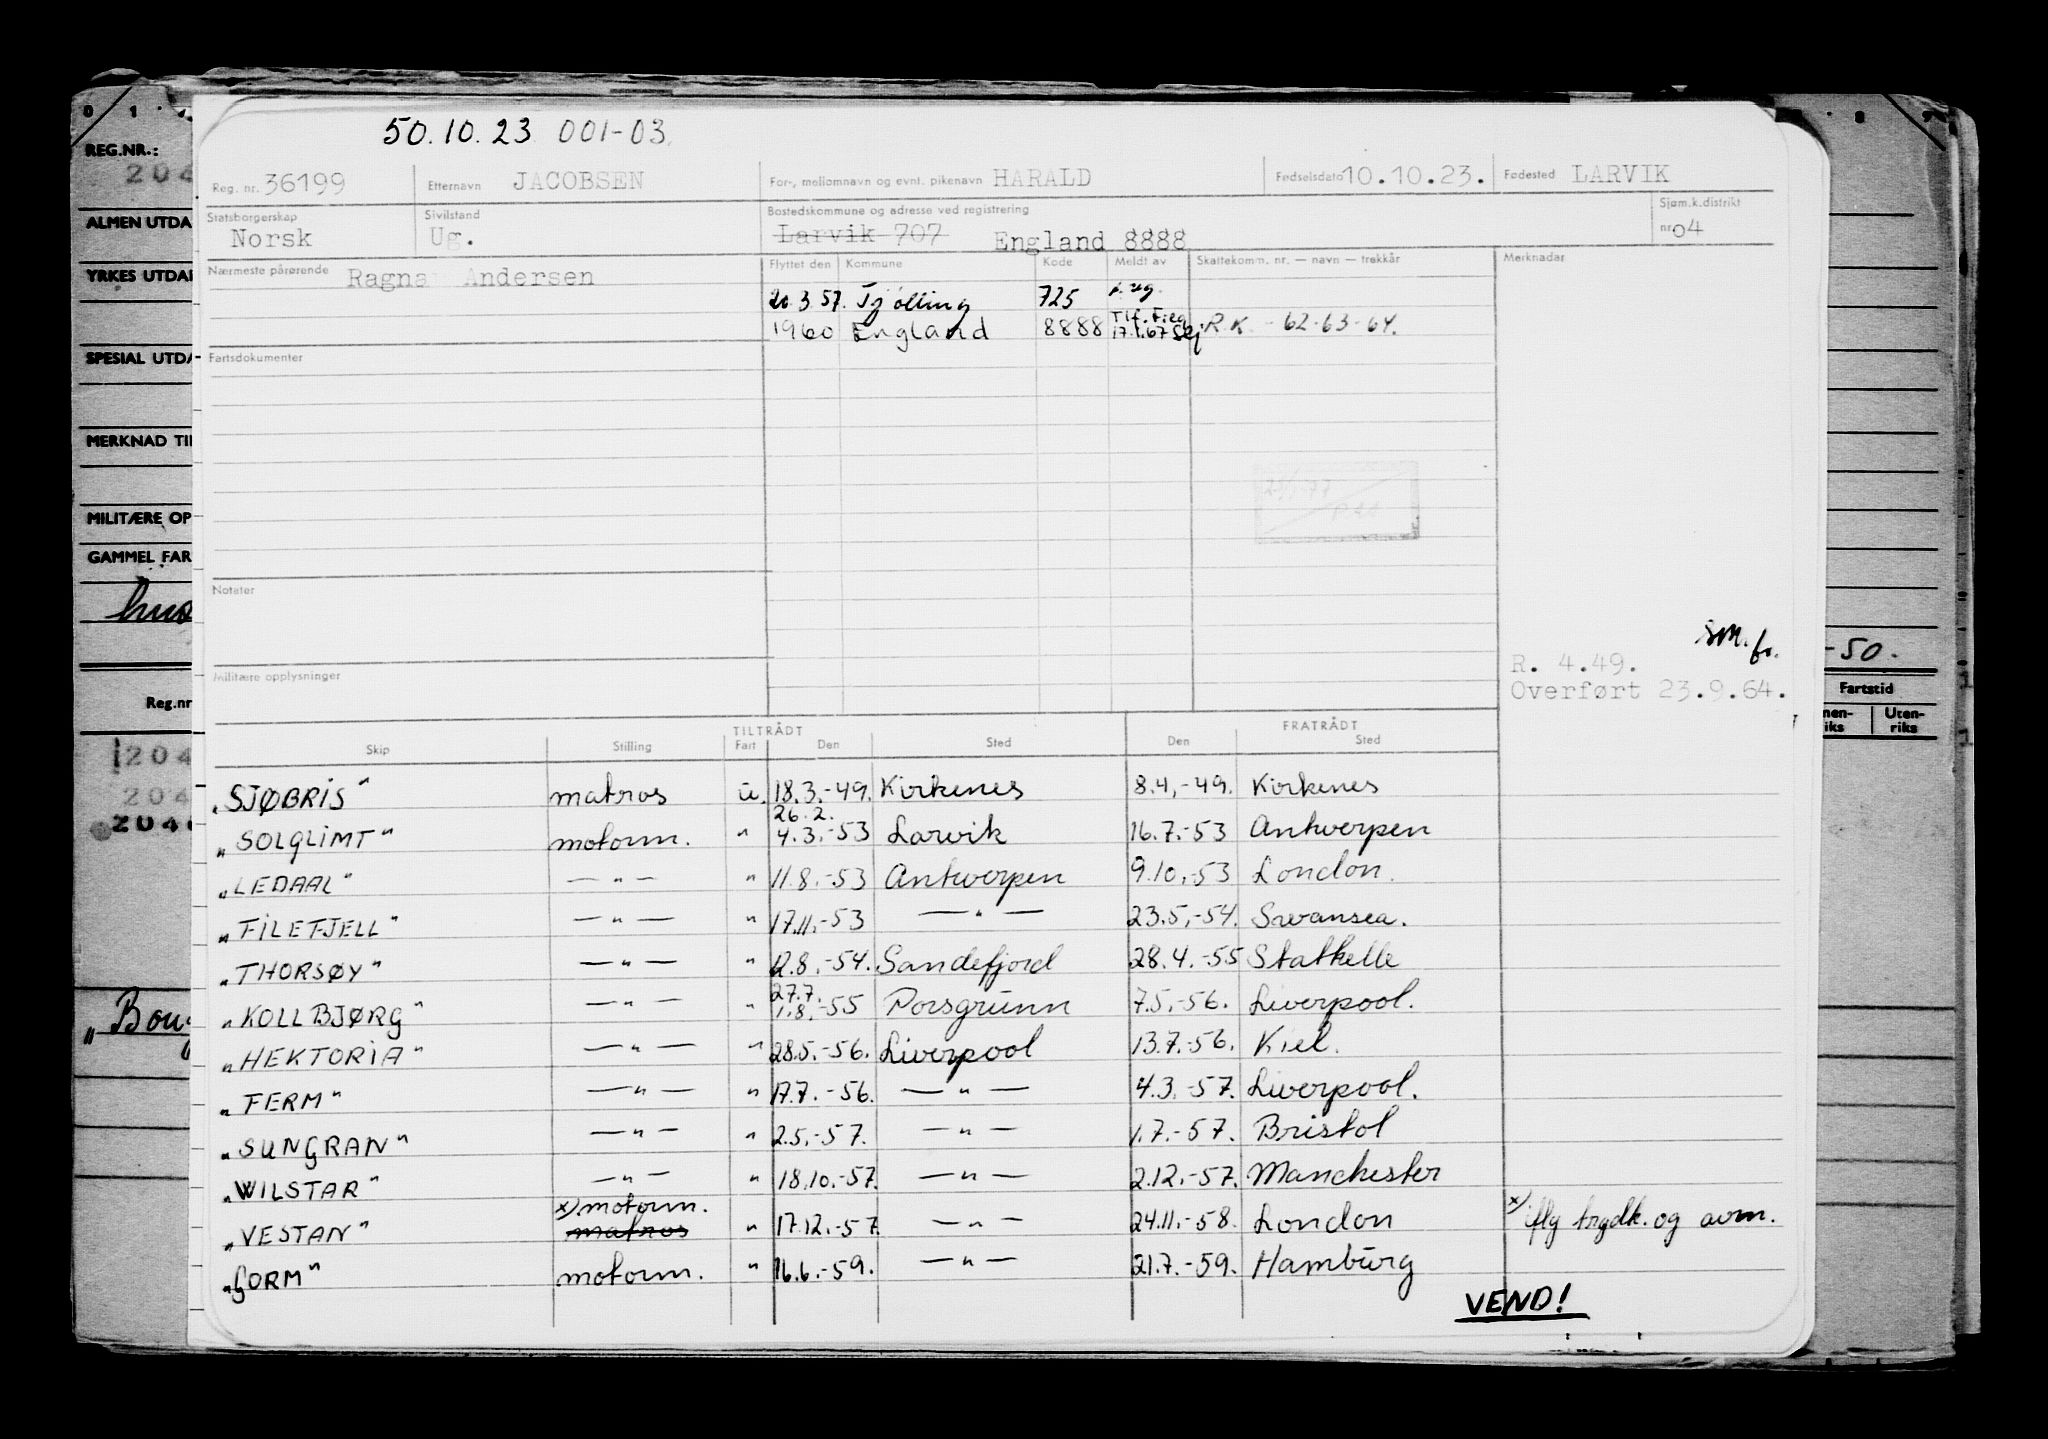 50.10.23 001-03
0 1 8 9
REG.NR.:
204
ALMEN UTDA
YRKES UTDA
SPESIAL UTDA
MERKNAD TI
MILITÆRE OP
GAMMEL FAR
Reg.nr
204
204
204
-50.
Fartstid
Uten-
riks
Reg. nr. 36199 Etternavn JACOBSEN For-, mellomnavn og evnt. pikenavn HARALD Fødselsdato 10.10.23. Fødested LARVIK
Statsborgerskap Sivilstand Bostedskommune og adresse ved registrering Sjøm.k.distrikt
Norsk Ug. Larvik 707 England 8888 nr. 04
Nærmeste pårørende Ragna Andersen Flyttet den Kommune Kode Meldt av Skattekomm. nr. — navn — trekkår Merknader
20.3.57. Tjølling 725
1960 England 8888 17.1.67 R.K. - 62-63-64.
Fartsdokumenter
Notater
sm. fr.
R. 4.49.
Militære opplysninger
Overført 23.9.64.
TILTRÅDT FRATRÅDT
Skip Stilling Fart Den Sted Den Sted
"SJØBRIS" matros u. 18.3.-49. Kirkenes 8.4.-49. Kirkenes
26.2.
"SOLGLIMT" motorm. " 4.3.-53 Larvik 16.7.-53 Antwerpen
"LEDAAL" — " — " 11.8.-53 Antwerpen 9.10.-53 London.
"FILEFJELL" — " — " 17.11.-53 — " — 23.5.-54. Swansea.
"THORSØY" — " — " 12.8.-54. Sandefjord 28.4.-55 Stathelle
27.7.
"KOLLBJØRG" — " — " 1.8.-55 Porsgrunn 7.5.-56. Liverpool.
"HEKTORIA" — " — " 28.5.-56. Liverpool 13.7.-56. Kiel.
"FERM" — " — " 17.7.-56. — " — 4.3.-57. Liverpool.
"SUNGRAN" — " — " 2.5.-57. — " — 1.7.-57. Bristol
"WILSTAR" — " — " 18.10.-57. — " — 2.12.-57. Manchester
x) motorm.
"VESTAN" matros " 17.12.-57. — " — 24.11.-58. London x) iflg trygdk. og avm.
"GORM" motorm. " 16.6.-59. — " — 21.7.-59. Hamburg
VEND!